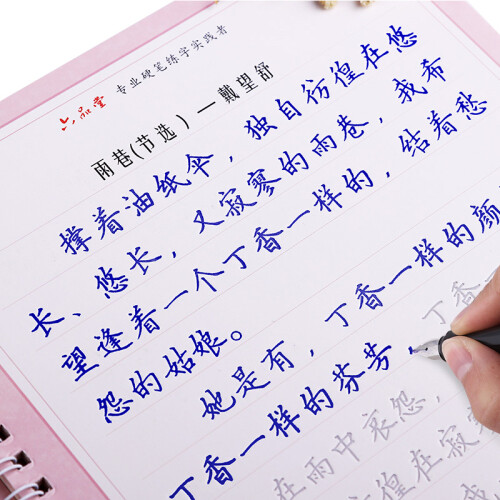 六品堂 专业硬笔练字实践者
雨巷(节选)—戴望舒
撑着油纸伞，独自彷徨在悠
长、悠长，又寂寥的雨巷，我希
望逢着一个丁香一样的，结着愁
怨的姑娘。
她是有，丁香一样的颜
丁香一样的芬芳，丁香
在雨中哀怨，
徨在寂寥